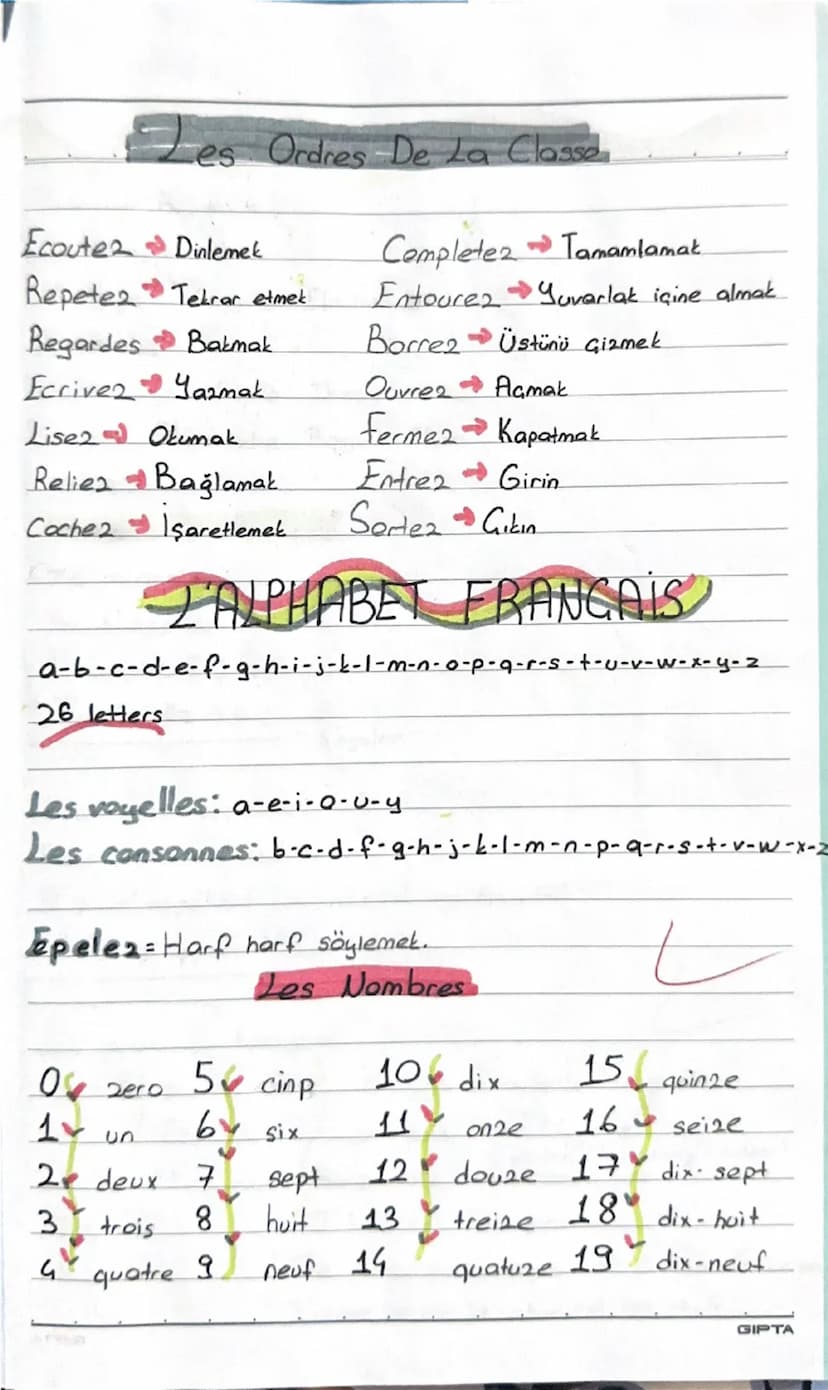 Les Ordres De La Classe
Ecoutez → Dinlemek Completez → Tamamlamak
Repetez → Tekrar etmek Entourez → Yuvarlak içine almak
Regardes → Bakmak Borrez → Üstünü Çizmek
Ecrivez → Yazmak Ouvrez → Açmak
Lisez → Okumak Fermez → Kapatmak
Reliez → Bağlamak Entrez → Girin
Cochez → İşaretlemek Sortez → Çıkın
L'ALPHABET FRANÇAİS
a-b-c-d-e-f-g-h-i-j-k-l-m-n-o-p-q-r-s-t-u-v-w-x-y-z
26 letters
Les voyelles: a-e-i-o-u-y
Les consonnes: b-c-d-f-g-h-j-k-l-m-n-p-q-r-s-t-v-w-x-z
Epelez = Harf harf söylemek.
Les Nombres
0 zero 5 cinp 10 dix 15 quinze
1 un 6 six 11 onze 16 seize
2 deux 7 sept 12 douze 17 dix-sept
3 trois 8 huit 13 treize 18 dix-huit
4 quatre 9 neuf 14 quatuze 19 dix-neuf
GIPTA